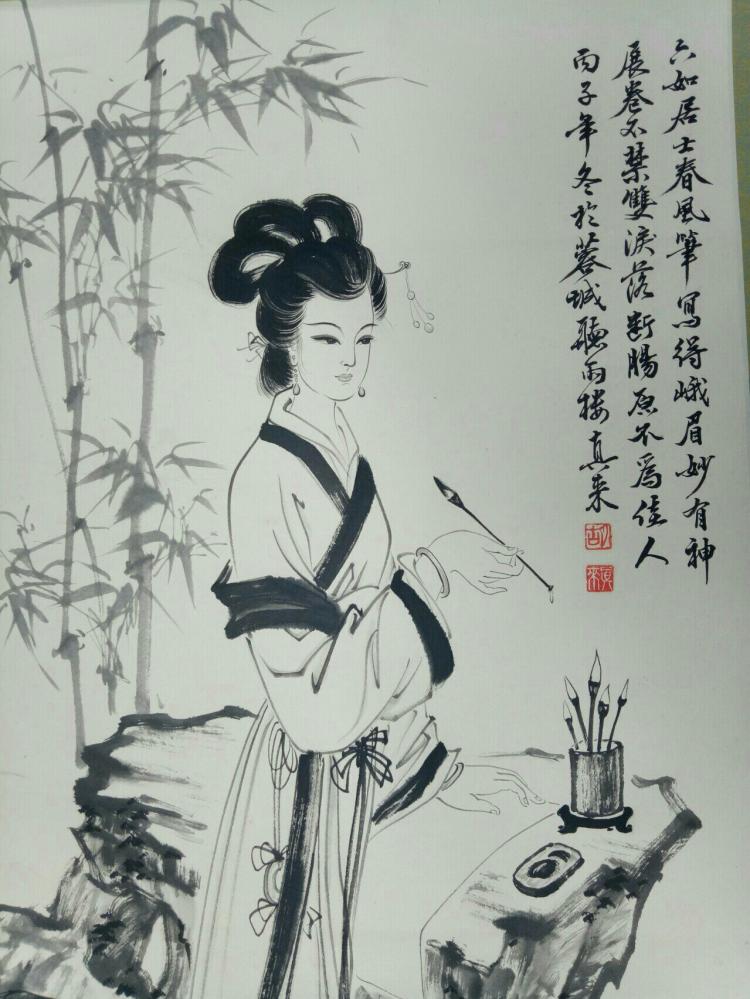 六如居士春風筆寫得峨眉妙有神
展卷不禁雙淚落斷腸原不爲佳人
丙子年冬於蓉城聽雨樓真来
真來